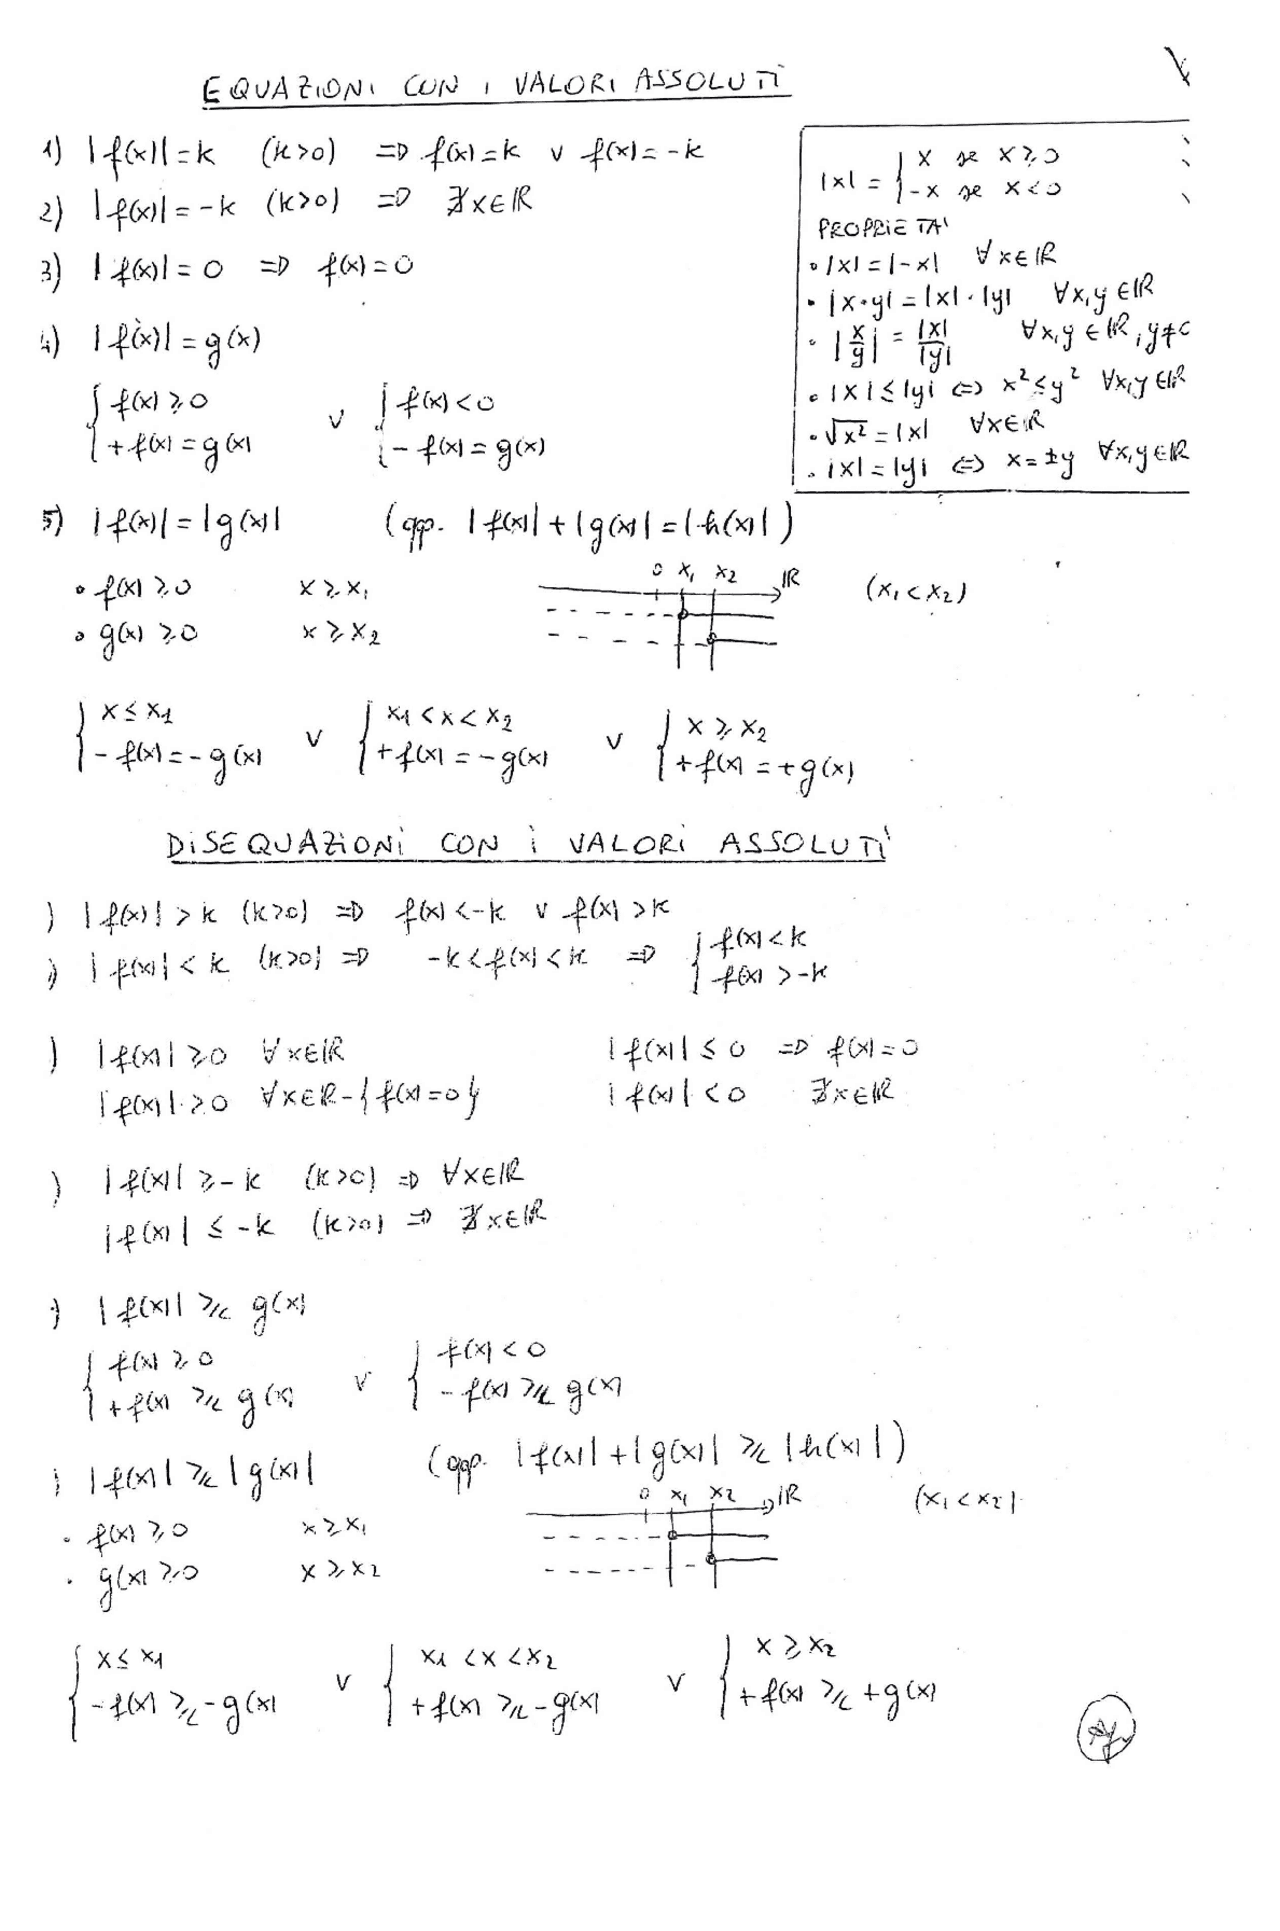 EQUAZIONI CON I VALORI ASSOLUTI
1) |f(x)| = k (k>0) => f(x) = k ∨ f(x) = -k
2) |f(x)| = -k (k>0) => ∄x∈ℝ
3) |f(x)| = 0 => f(x) = 0
4) |f(x)| = g(x)
{ f(x) ≥ 0 ∨ { f(x) < 0
{ +f(x) = g(x) { -f(x) = g(x)
|x| = { x se x ≥ 0
{ -x se x < 0
PROPRIETA'
• |x| = |-x| ∀x∈ℝ
• |x·y| = |x|·|y| ∀x,y∈ℝ
• |x/y| = |x|/|y| ∀x,y∈ℝ, y≠0
• |x| ≤ |y| <=> x² ≤ y² ∀x,y∈ℝ
• √x² = |x| ∀x∈ℝ
• |x| = |y| <=> x = ±y ∀x,y∈ℝ
5) |f(x)| = |g(x)| (opp. |f(x)| + |g(x)| = |h(x)|)
• f(x) ≥ 0 x ≥ x₁
• g(x) ≥ 0 x ≥ x₂
0 x₁ x₂ ℝ (x₁ < x₂)
{ x ≤ x₁ ∨ { x₁ < x < x₂ ∨ { x ≥ x₂
{ -f(x) = -g(x) { +f(x) = -g(x) { +f(x) = +g(x)
DISEQUAZIONI CON I VALORI ASSOLUTI
) |f(x)| > k (k>0) => f(x) < -k ∨ f(x) > k
) |f(x)| < k (k>0) => -k < f(x) < k => { f(x) < k
{ f(x) > -k
) |f(x)| ≥ 0 ∀x∈ℝ |f(x)| ≤ 0 => f(x) = 0
|f(x)| > 0 ∀x∈ℝ-{f(x)=0} |f(x)| < 0 ∄x∈ℝ
) |f(x)| ≥ -k (k>0) => ∀x∈ℝ
|f(x)| ≤ -k (k>0) => ∄x∈ℝ
) |f(x)| ≥/≤ g(x)
{ f(x) ≥ 0 ∨ { f(x) < 0
{ +f(x) ≥/≤ g(x) { -f(x) ≥/≤ g(x)
) |f(x)| ≥/≤ |g(x)| (opp. |f(x)| + |g(x)| ≥/≤ |h(x)|)
• f(x) ≥ 0 x ≥ x₁
• g(x) ≥ 0 x ≥ x₂
0 x₁ x₂ ℝ (x₁ < x₂)
{ x ≤ x₁ ∨ { x₁ < x < x₂ ∨ { x ≥ x₂
{ -f(x) ≥/≤ -g(x) { +f(x) ≥/≤ -g(x) { +f(x) ≥/≤ +g(x)